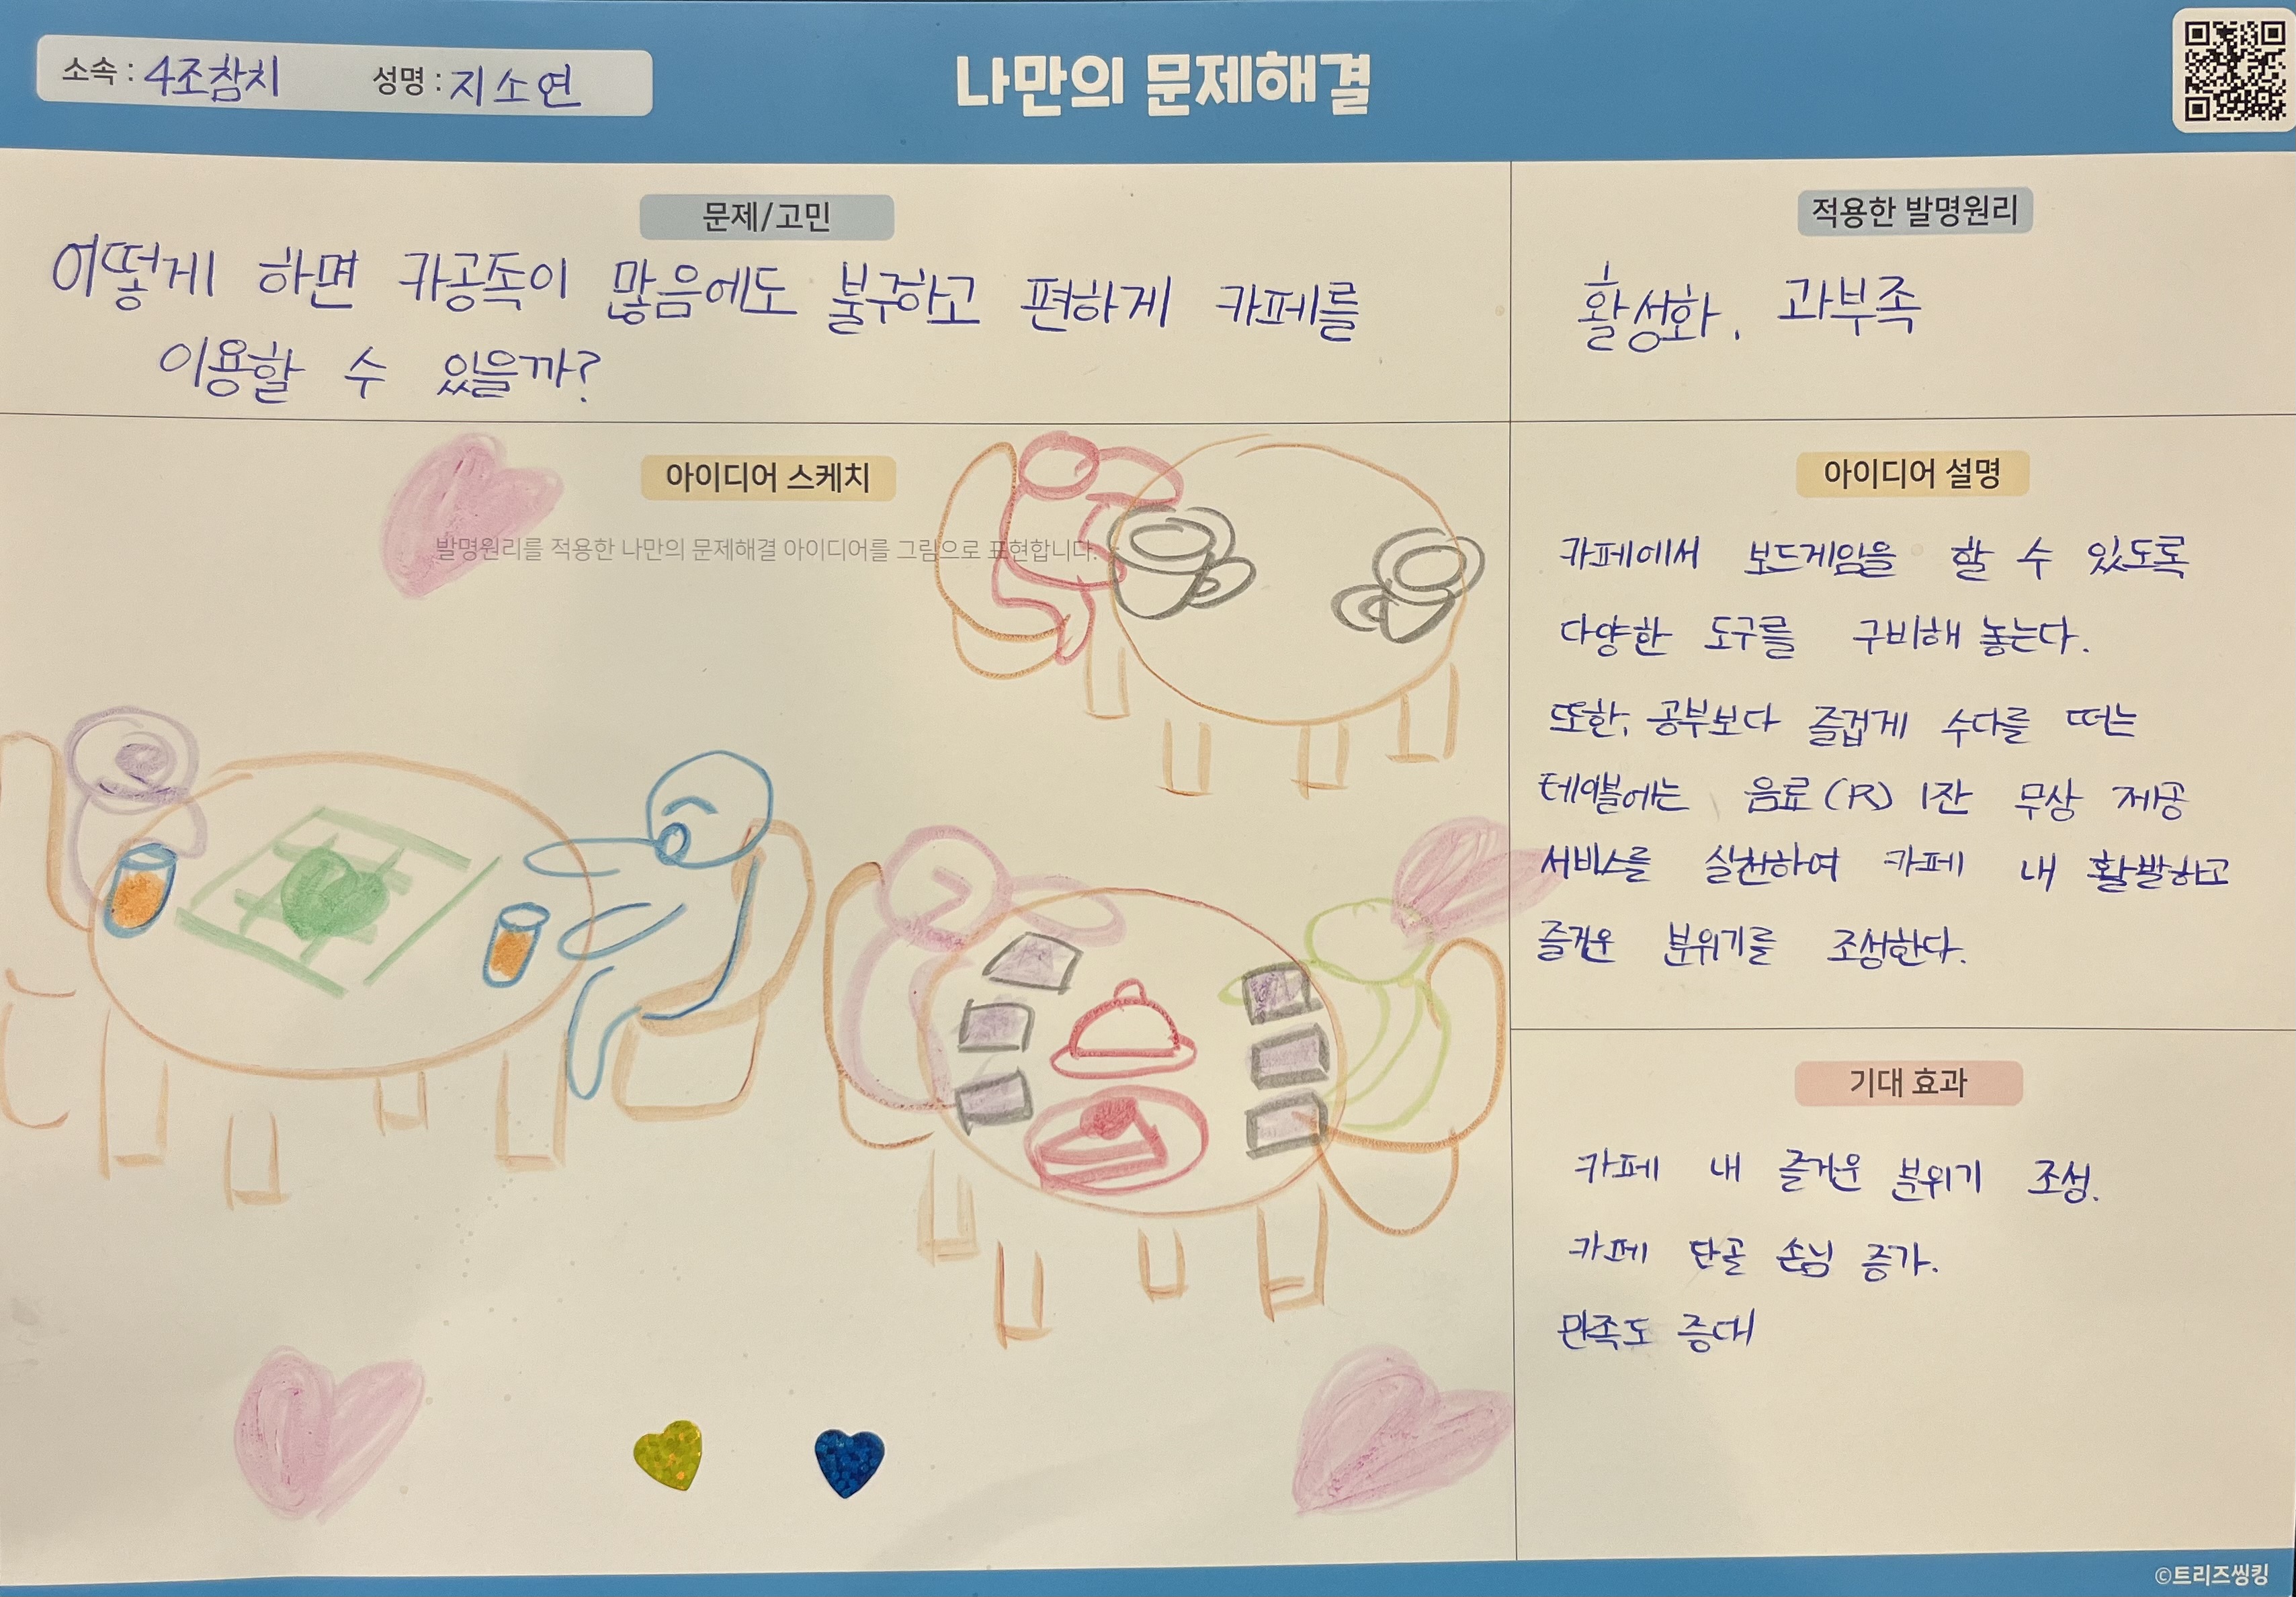 소속 : 4조참치 성명 : 지소연
나만의 문제해결
문제/고민
어떻게 하면 카공족이 많음에도 불구하고 편하게 카페를
이용할 수 있을까?
적용한 발명원리
활성화, 과부족
아이디어 스케치
발명원리를 적용한 나만의 문제해결 아이디어를 그림으로 표현합니다.
아이디어 설명
카페에서 보드게임을 할 수 있도록
다양한 도구를 구비해 놓는다.
또한, 공부보다 즐겁게 수다를 떠는
테이블에는 음료(R) 1잔 무상 제공
서비스를 실천하여 카페 내 활발하고
즐거운 분위기를 조성한다.
기대 효과
카페 내 즐거운 분위기 조성.
카페 단골 손님 증가.
만족도 증대
©트리즈씽킹